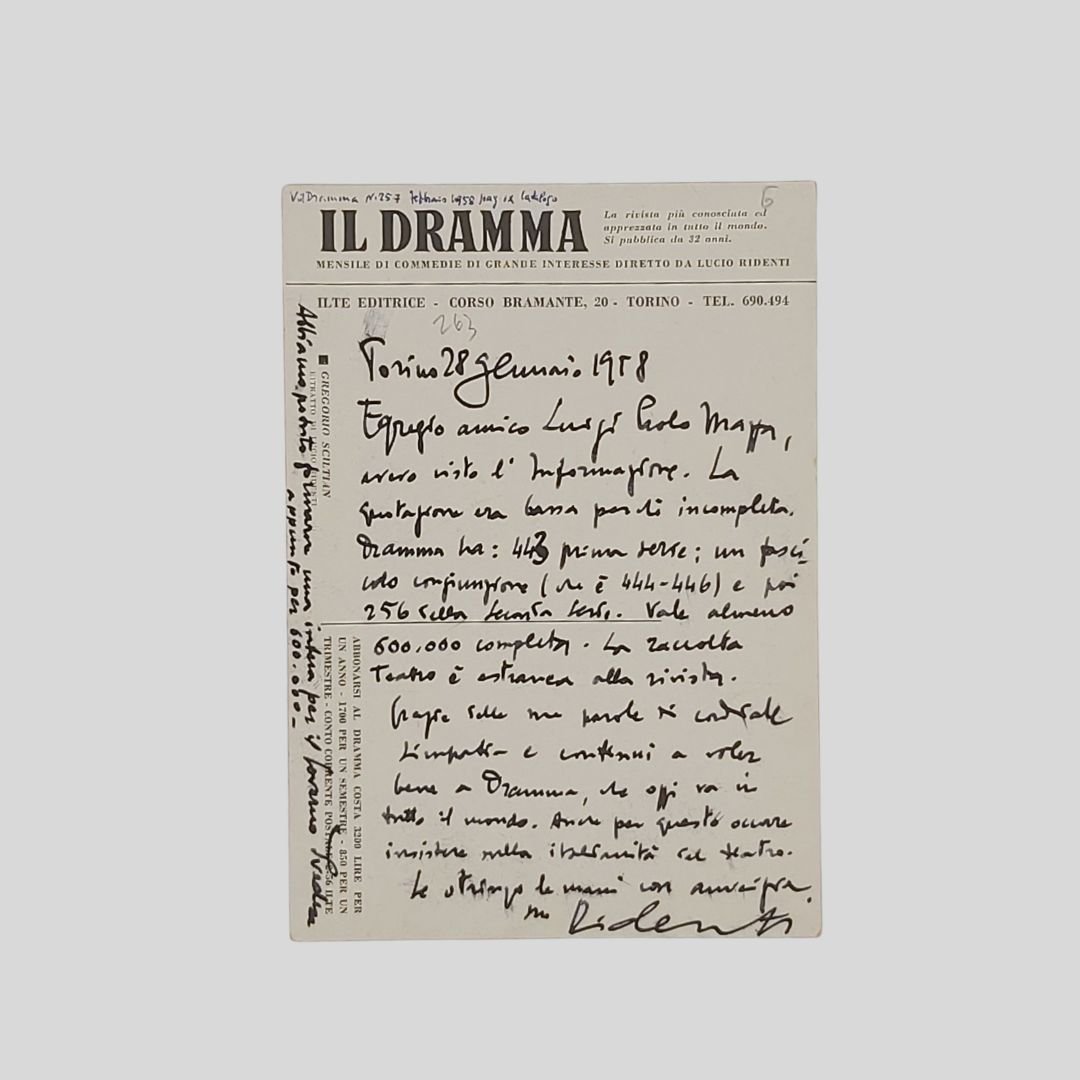 N. 257 febbraio 1958 pag
6
IL DRAMMA
La rivista più conosciuta ed
apprezzata in tutto il mondo.
Si pubblica da 32 anni.
MENSILE DI COMMEDIE DI GRANDE INTERESSE DIRETTO DA LUCIO RIDENTI
ILTE EDITRICE - CORSO BRAMANTE, 20 - TORINO - TEL. 690.494
263
Torino 28 gennaio 1958
Egregio amico Luigi Paolo
avevo visto l'Informazione. La
quotazione era bassa perché incompleta.
Dramma ha: 443 prima serie; un fasci-
colo congiunzione (che è 444-446) e poi
256 della seconda serie. Vale almeno
600.000 completa. La raccolta
Teatro è estranea alla rivista.
Grazie delle sue parole di cordiale
simpatia e continui a voler
bene a Dramma, che oggi va in
tutto il mondo. Anche per questo occorre
insistere sulla italianità del teatro.
Le stringo le mani con amicizia.
suo Ridenti
Abbiamo potuto formarne una intera per il governo svedese
appunto per 600.000-
GREGORIO SCILTIAN
RITRATTO DI LUCIO RIDENTI
ABBONARSI AL DRAMMA COSTA 3200 LIRE PER
UN ANNO - 1700 PER UN SEMESTRE - 850 PER UN
TRIMESTRE - CONTO CORRENTE POSTALE ILTE